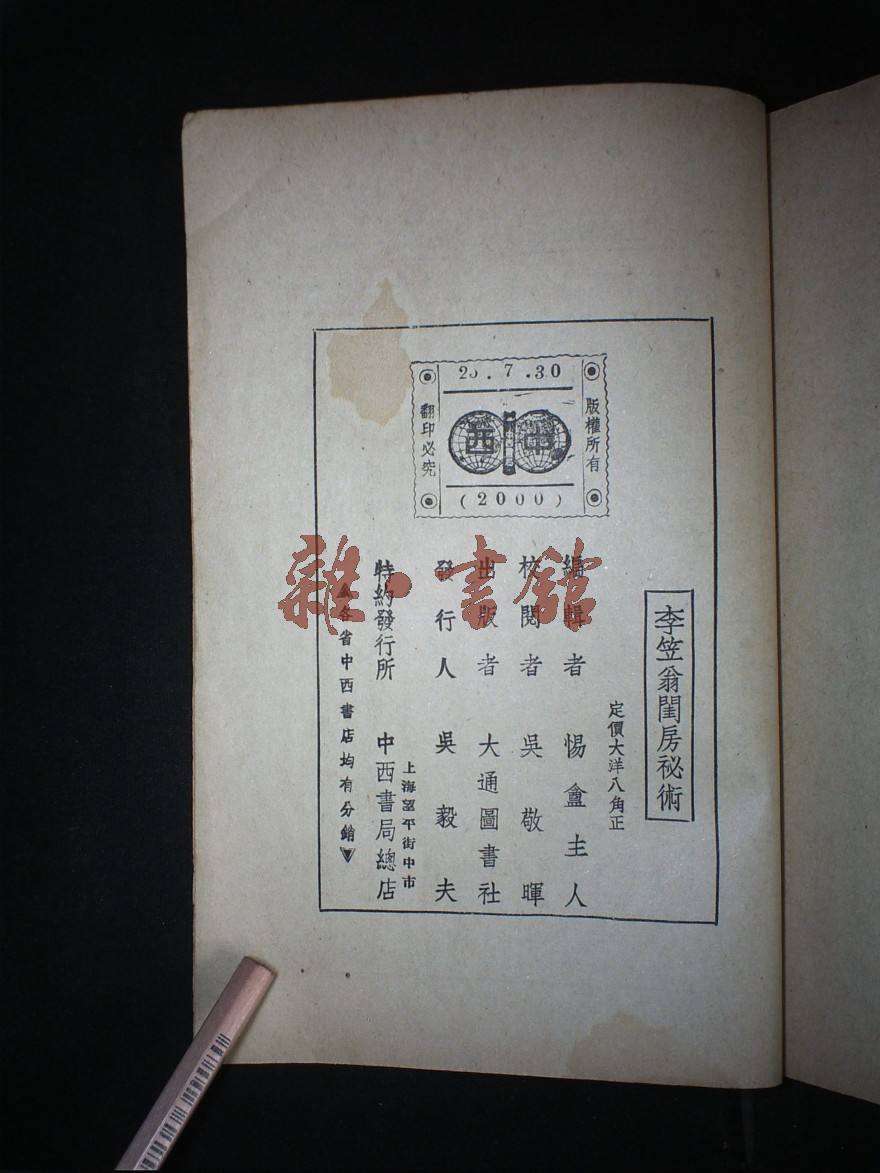 李笠翁閨房祕術
定價大洋八角正
編輯者 惕盦主人
校閱者 吳敬暉
出版者 大通圖書社
發行人 吳毅夫
上海望平街中市
特約發行所 中西書局總店
各省中西書店均有分銷
版權所有
7.30
中西
(2000)
翻印必究
雜·書館